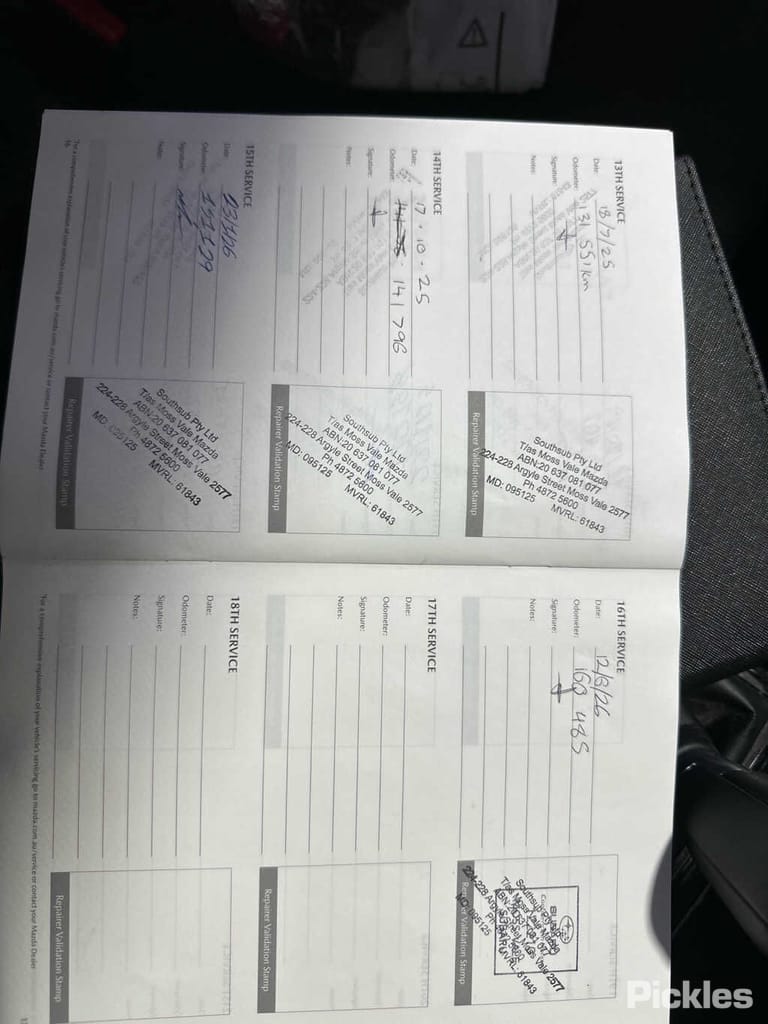 13TH SERVICE
Date: 18/7/25
Odometer: 131 551km
Signature:
Notes:
Southsub Pty Ltd
T/as Moss Vale Mazda
ABN:20 637 081 077
224-228 Argyle Street Moss Vale 2577
Ph 4872 5600
MD: 095125 MVRL: 61843
Repairer Validation Stamp
14TH SERVICE
Date: 17.10.25
Odometer: 141 796
Signature:
Notes:
Southsub Pty Ltd
T/as Moss Vale Mazda
ABN:20 637 081 077
224-228 Argyle Street Moss Vale 2577
Ph 4872 5600
MD: 095125 MVRL: 61843
Repairer Validation Stamp
15TH SERVICE
Date:
Odometer: 151129
Signature:
Notes:
Southsub Pty Ltd
T/as Moss Vale Mazda
ABN:20 637 081 077
224-228 Argyle Street Moss Vale 2577
Ph 4872 5600
MD: 095125 MVRL: 61843
Repairer Validation Stamp
16
*For a comprehensive explanation of your vehicle's servicing go to mazda.com.au/service or contact your Mazda Dealer
16TH SERVICE
Date:
Odometer: 160 485
Signature:
Notes:
Southsub Pty Ltd
224-228 Argyle
Moss Vale 2577
MD: 095125
MVRL: 61843
SUBARU
Repairer Validation Stamp
17TH SERVICE
Date:
Odometer:
Signature:
Notes:
Repairer Validation Stamp
18TH SERVICE
Date:
Odometer:
Signature:
Notes:
Repairer Validation Stamp
*For a comprehensive explanation of your vehicle's servicing go to mazda.com.au/service or contact your Mazda Dealer
Pickles